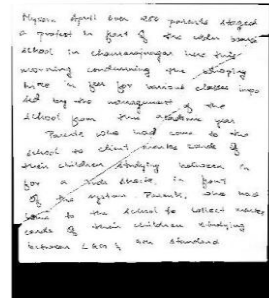 Mysore April over 250 parents staged
a protest in front of the urban board
school in Chamarajanagar here this
morning condemning the
hike in fees for various classes impo
sed by the management of the
school from this academic year
Parents who had come to the
school to collect marks cards of
their children studying between
for a in front
of the system. Parents, who had
come to the school to collect marks
cards of their children studying
between LKG & 5th standard